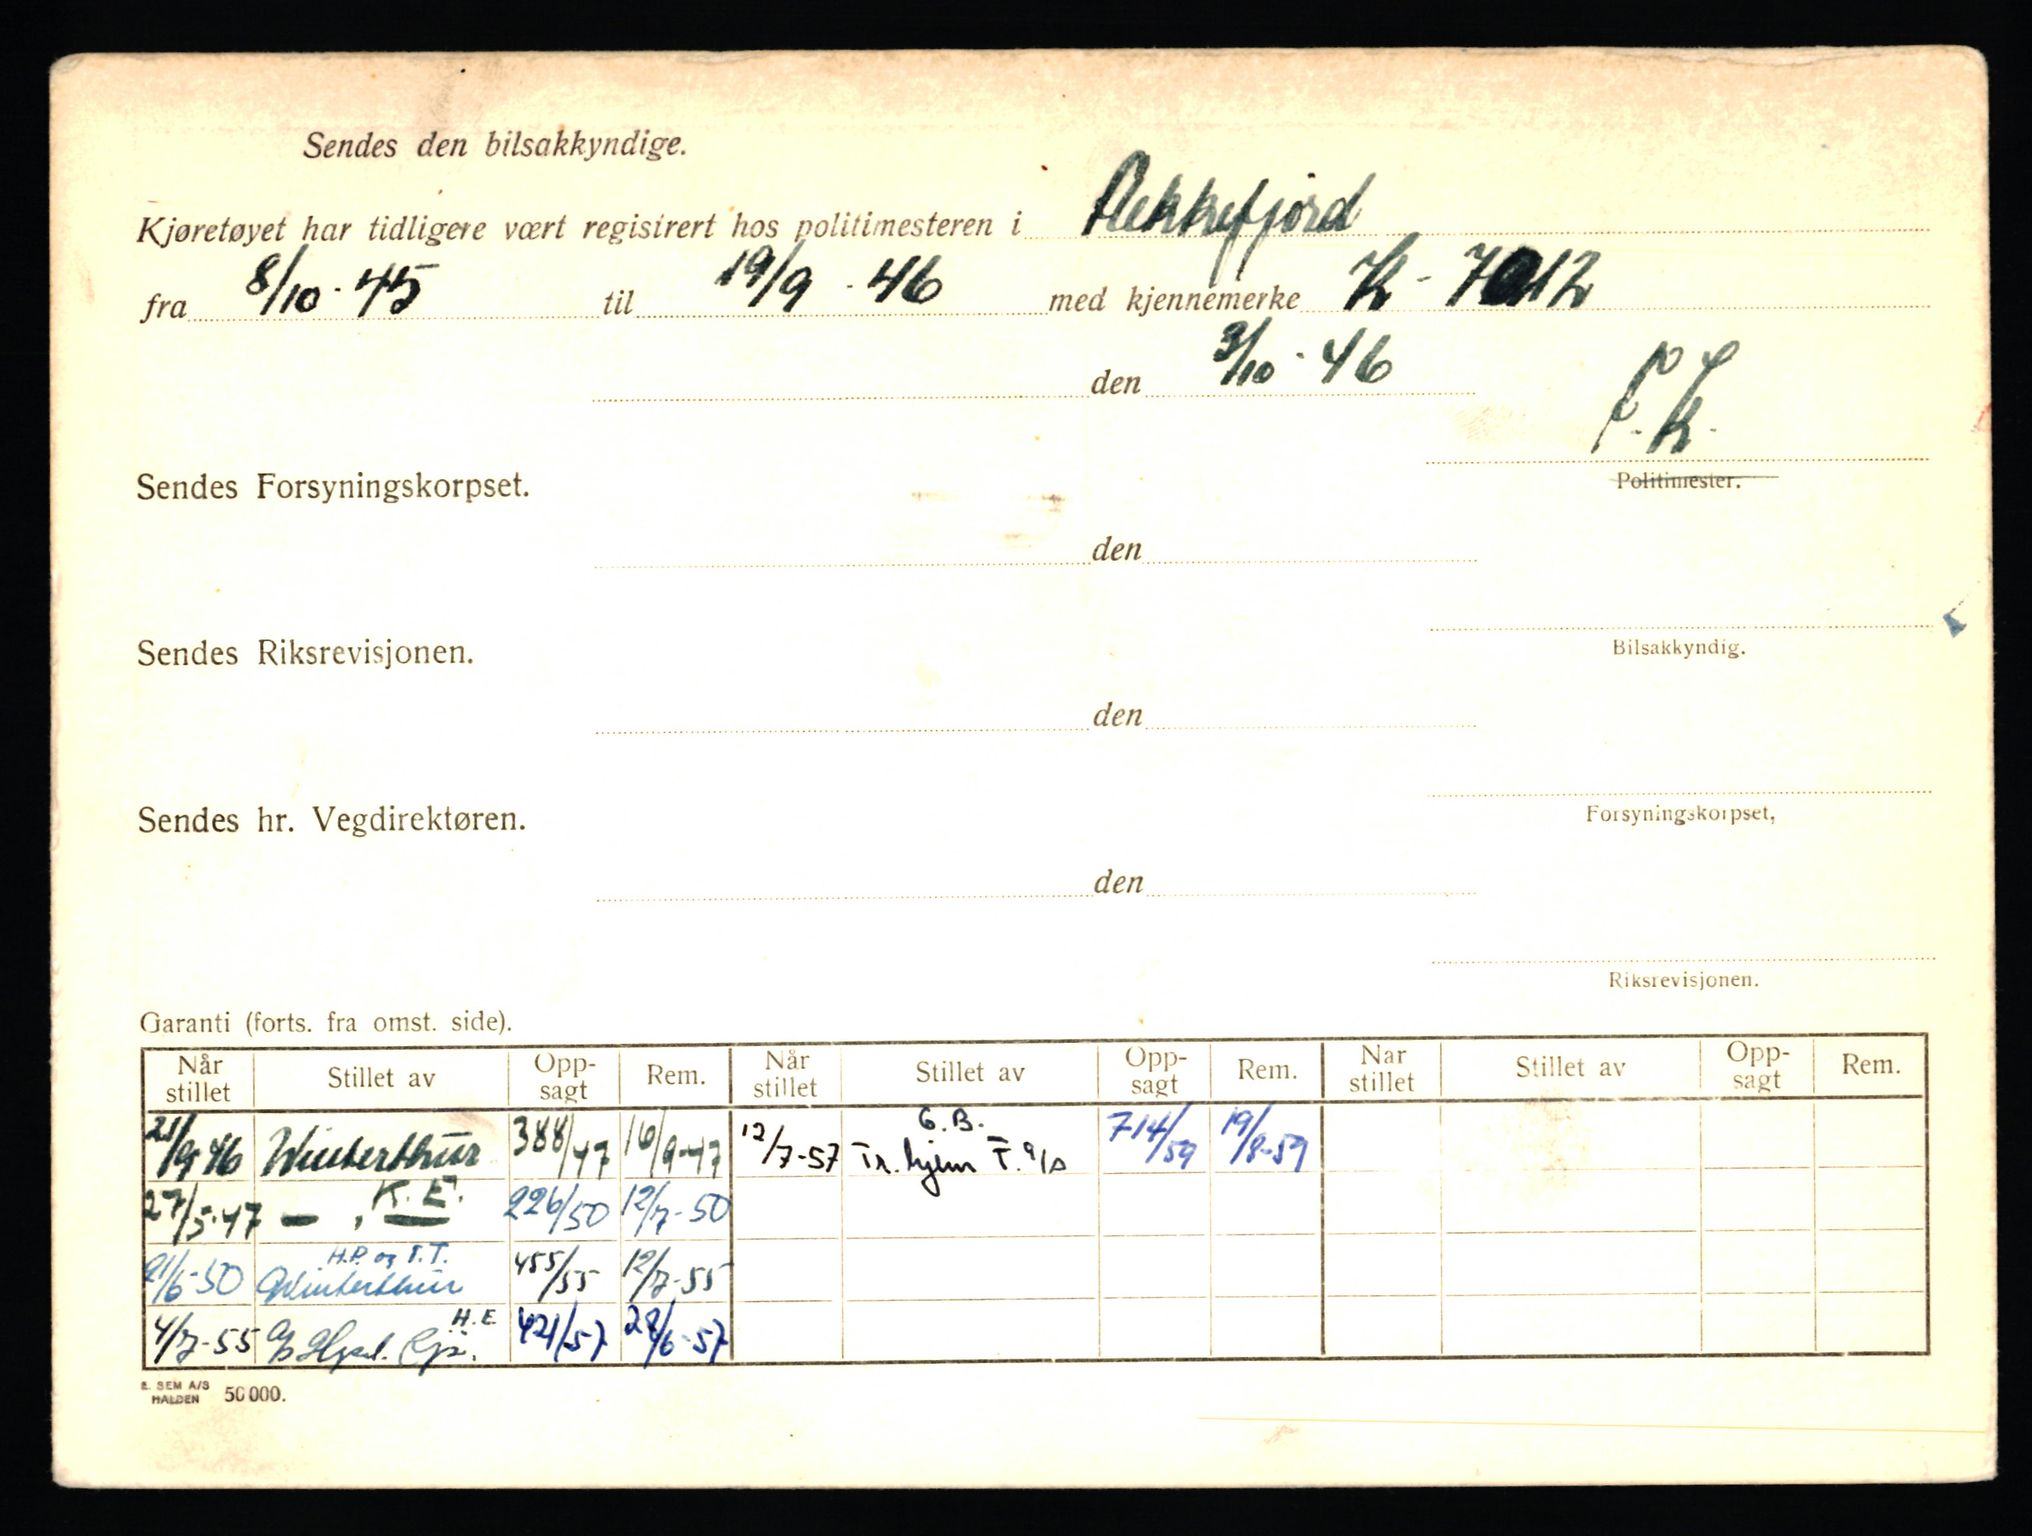 Sendes den bilsakkyndige.
Kjøretøyet har tidligere vært registrert hos politimesteren i Flekkefjord
fra 8/10 - 45 til 19/9 - 46 med kjennemerke K - 12
den 3/10 - 46
Politimester.
Sendes Forsyningskorpset.
den
Bilsakkyndig.
Sendes Riksrevisjonen.
den
Forsyningskorpset,
Sendes hr. Vegdirektøren.
den
Riksrevisjonen.
Garanti (forts. fra omst. side).
Når stillet Stillet av Opp- sagt Rem. Når stillet Stillet av Opp- sagt Rem. Når stillet Stillet av Opp- sagt Rem.
21/9 46 Winterthur 388/47 16/9-47 12/7-57 G.B. Tr.hjem F. A/S 714/59 19/8-59
27/5-47 — , K. E. 226/50 12/7-50
21/6-50 H.P. og T.T. Winterthur 455/55 12/7-55
4/7-55 H.E. 421/57 28/6-57
E. SEM A/S HALDEN 50 000.